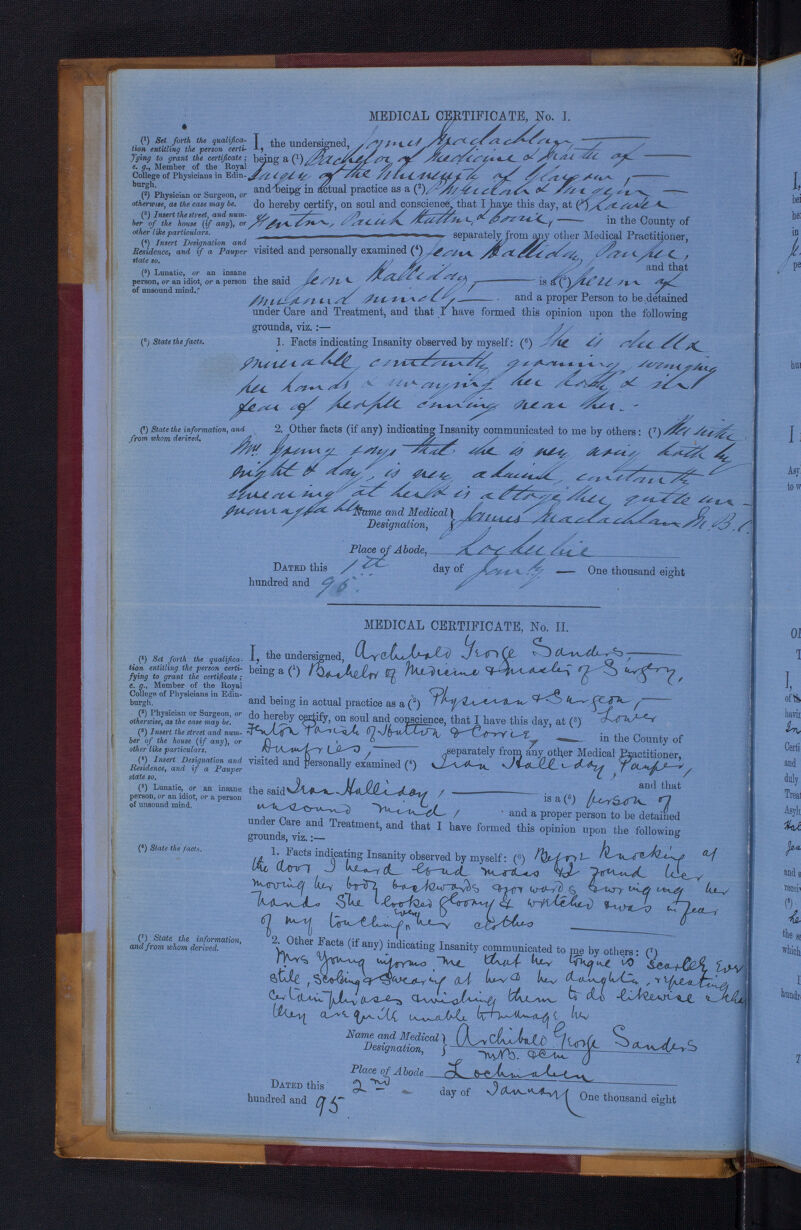 MEDICAL CERTIFICATE, No. I.
(¹) Set forth the qualifica-
tion entitling the person certi-
fying to grant the certificate;
e. g., Member of the Royal
College of Physicians in Edin-
burgh.
(²) Physician or Surgeon, or
otherwise, as the case may be.
(³) Insert the street, and num-
ber of the house (if any), or
other like particulars.
(⁴) Insert Designation and
Residence, and if a Pauper
state so.
(⁵) Lunatic, or an insane
person, or an idiot, or a person
of unsound mind.
I, the undersigned, James Maclachlan
being a (¹) Bachelor of Medicine & Master of
Surgery of the University of Glasgow,
and being in actual practice as a (²) Physician & Surgeon
do hereby certify, on soul and conscience, that I have this day, at (³) Lower
Fenton, Parish Hutton & Corrie, in the County of
separately from any other Medical Practitioner,
visited and personally examined (⁴) Jean Halliday, Pauper,
and that
the said Jean Halliday, is a (⁵) person of
unsound mind, and a proper Person to be detained
under Care and Treatment, and that I have formed this opinion upon the following
grounds, viz. :—
(⁶) State the facts.
1. Facts indicating Insanity observed by myself: (⁶) She is dull &
miserable constantly groaning, wringing
her hands & swaying her body & in
fear of people coming near her.
(⁷) State the information, and
from whom derived.
2. Other facts (if any) indicating Insanity communicated to me by others: (⁷) Her sister
Mrs Young says that she is very noisy both by
night & day, is very constantly
swearing at her & is altogether quite un-
manageable
Name and Medical
Designation,
James Maclachlan M.B.C.
Place of Abode, Lockerbie
DATED this 1st day of Jany One thousand eight
hundred and 95
MEDICAL CERTIFICATE, No. II.
(¹) Set forth the qualifica-
tion entitling the person certi-
fying to grant the certificate;
e. g., Member of the Royal
College of Physicians in Edin-
burgh.
(²) Physician or Surgeon, or
otherwise, as the case may be.
(³) Insert the street and num-
ber of the house (if any), or
other like particulars.
(⁴) Insert Designation and
Residence, and if a Pauper
state so.
(⁵) Lunatic, or an insane
person, or an idiot, or a person
of unsound mind.
I, the undersigned, Archibald George Sanders
being a (¹) Bachelor of Medicine & Master of Surgery,
and being in actual practice as a (²) Physician & Surgeon,
do hereby certify, on soul and conscience, that I have this day, at (³) Lower
Fenton Parish of Hutton & Corrie, in the County of
Dumfries, separately from any other Medical Practitioner,
visited and personally examined (⁴) Jean Halliday, Pauper,
and that
the said Jean Halliday, is a (⁵) person of
unsound mind, and a proper person to be detained
under Care and Treatment, and that I have formed this opinion upon the following
grounds, viz. :—
(⁶) State the facts.
1. Facts indicating Insanity observed by myself: (⁶) Before knocking at
the door I heard loud moans & I found her
moving her body backwards & forwards & wringing her
hands She looked gloomy & wretched & was in fear
of my touching even her clothes
(⁷) State the information,
and from whom derived.
2. Other Facts (if any) indicating Insanity communicated to me by others: (⁷)
Mrs Young informs me that her tongue is scarcely ever
still, scolding & swearing at her & her daughter, repeating
certain phrases & wishing them to do likewise & that
they are quite unable to manage her
Name and Medical
Designation,
Archibald George Sanders
M.B. & C.M
Place of Abode Lochmaben
DATED this 2nd day of January One thousand eight
hundred and 95